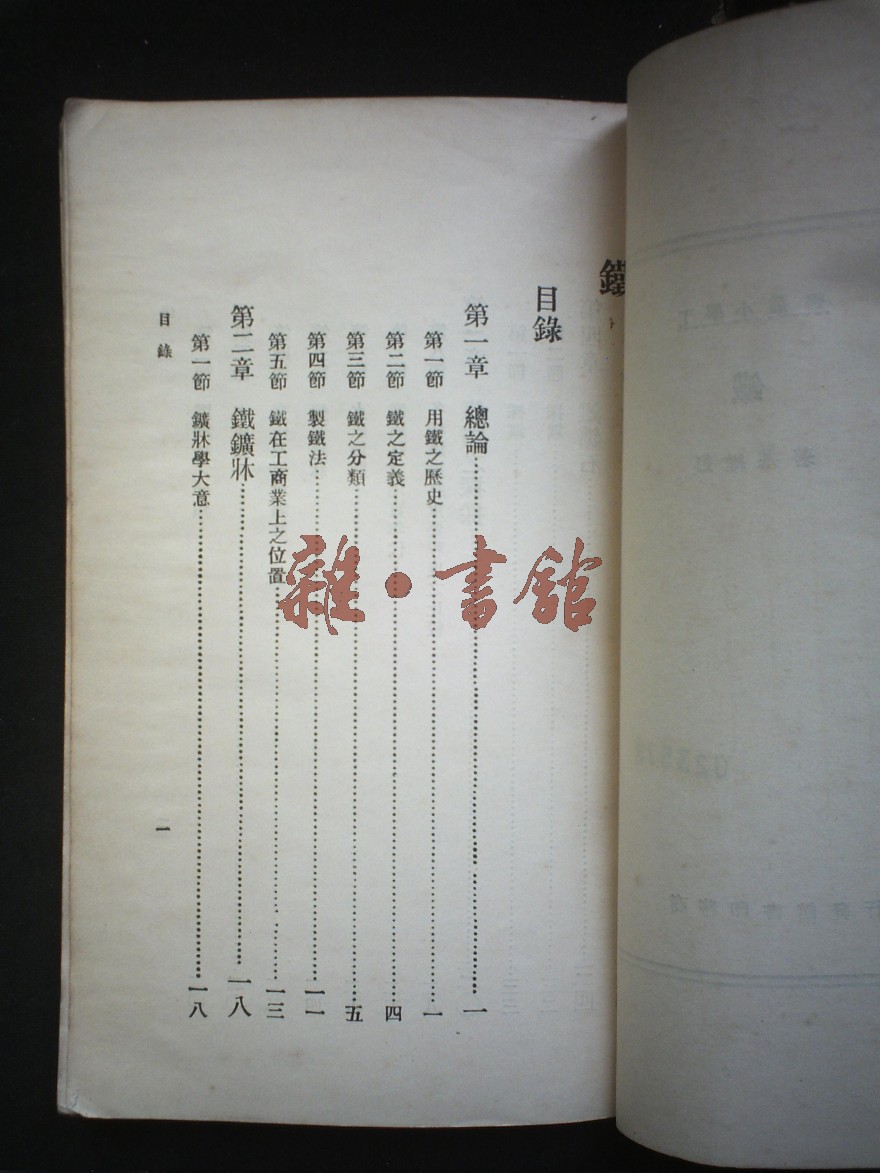 鐵
目錄
第一章 總論……一
第一節 用鐵之歷史……一
第二節 鐵之定義……四
第三節 鐵之分類……五
第四節 製鐵法……一一
第五節 鐵在工商業上之位置……一三
第二章 鐵鑛牀……一八
第一節 鑛牀學大意……一八
目錄
一
雜・書館